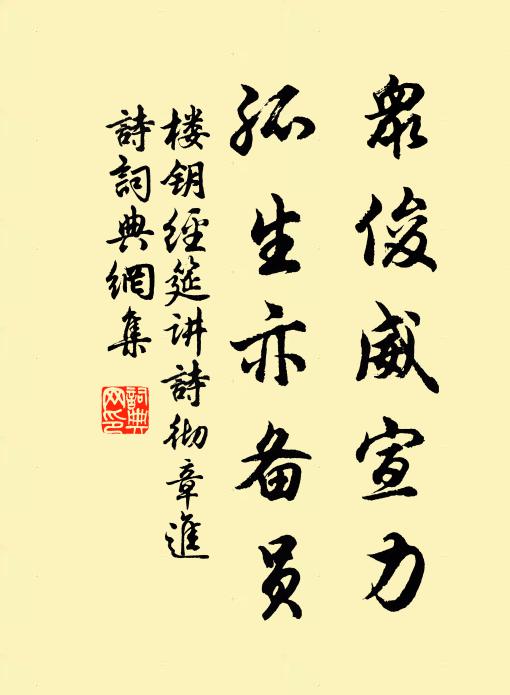 眾俊威宣力
孤生亦备员
楼钥經筵讲詩彻章進
詩詞典網集
詞典網印